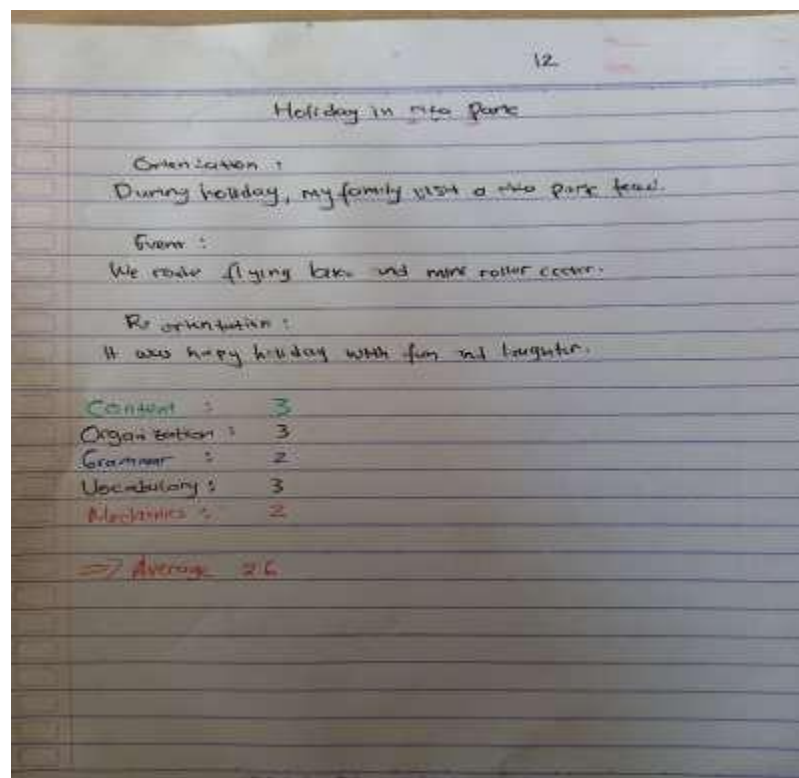 12
Holiday in Park
Orientation :
During holiday, my family visit a park
Event :
We flying and mini roller
Re orientation :
It was happy holiday with fun and laughter.
Content : 3
Organization : 3
Grammar : 2
Vocabulary : 3
Mechanics : 2
=> Average 2.6